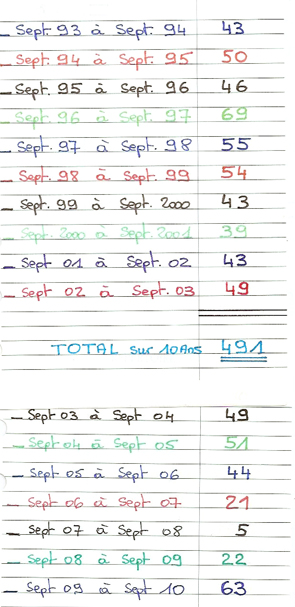 - Sept. 93 à Sept. 94 43
- Sept. 94 à Sept. 95 50
- Sept. 95 à Sept. 96 46
- Sept. 96 à Sept. 97 69
- Sept. 97 à Sept. 98 55
- Sept. 98 à Sept. 99 54
- Sept. 99 à Sept. 2000 43
- Sept. 2000 à Sept. 2001 39
- Sept 01 à Sept. 02 43
- Sept 02 à Sept. 03 49
TOTAL sur 10 Ans 491
- Sept 03 à Sept 04 49
- Sept 04 à Sept 05 51
- Sept 05 à Sept 06 44
- Sept 06 à Sept 07 21
- Sept 07 à Sept 08 5
- Sept 08 à Sept 09 22
- Sept 09 à Sept 10 63